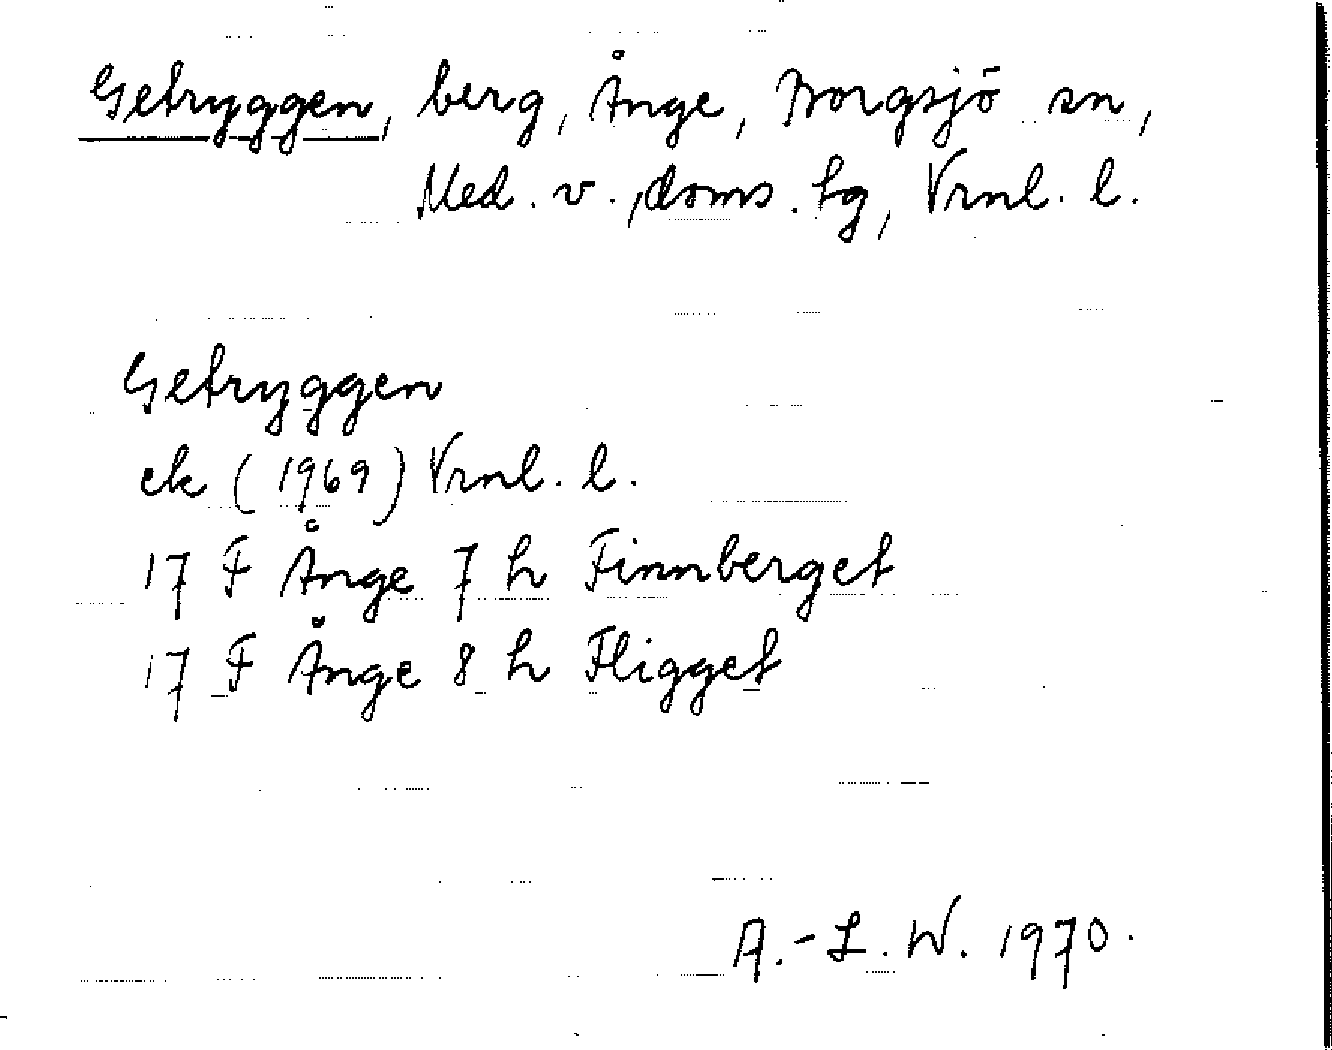 Getryggen, berg, Ånge, Borgsjö sn,
Med. v., doms. hg, Vrnl. l.
Getryggen
ek (1969) Vrnl. l.
17 F Ånge 7 h Finnberget
17 F Ånge 8 h Fligget
A.-L. W. 1970.